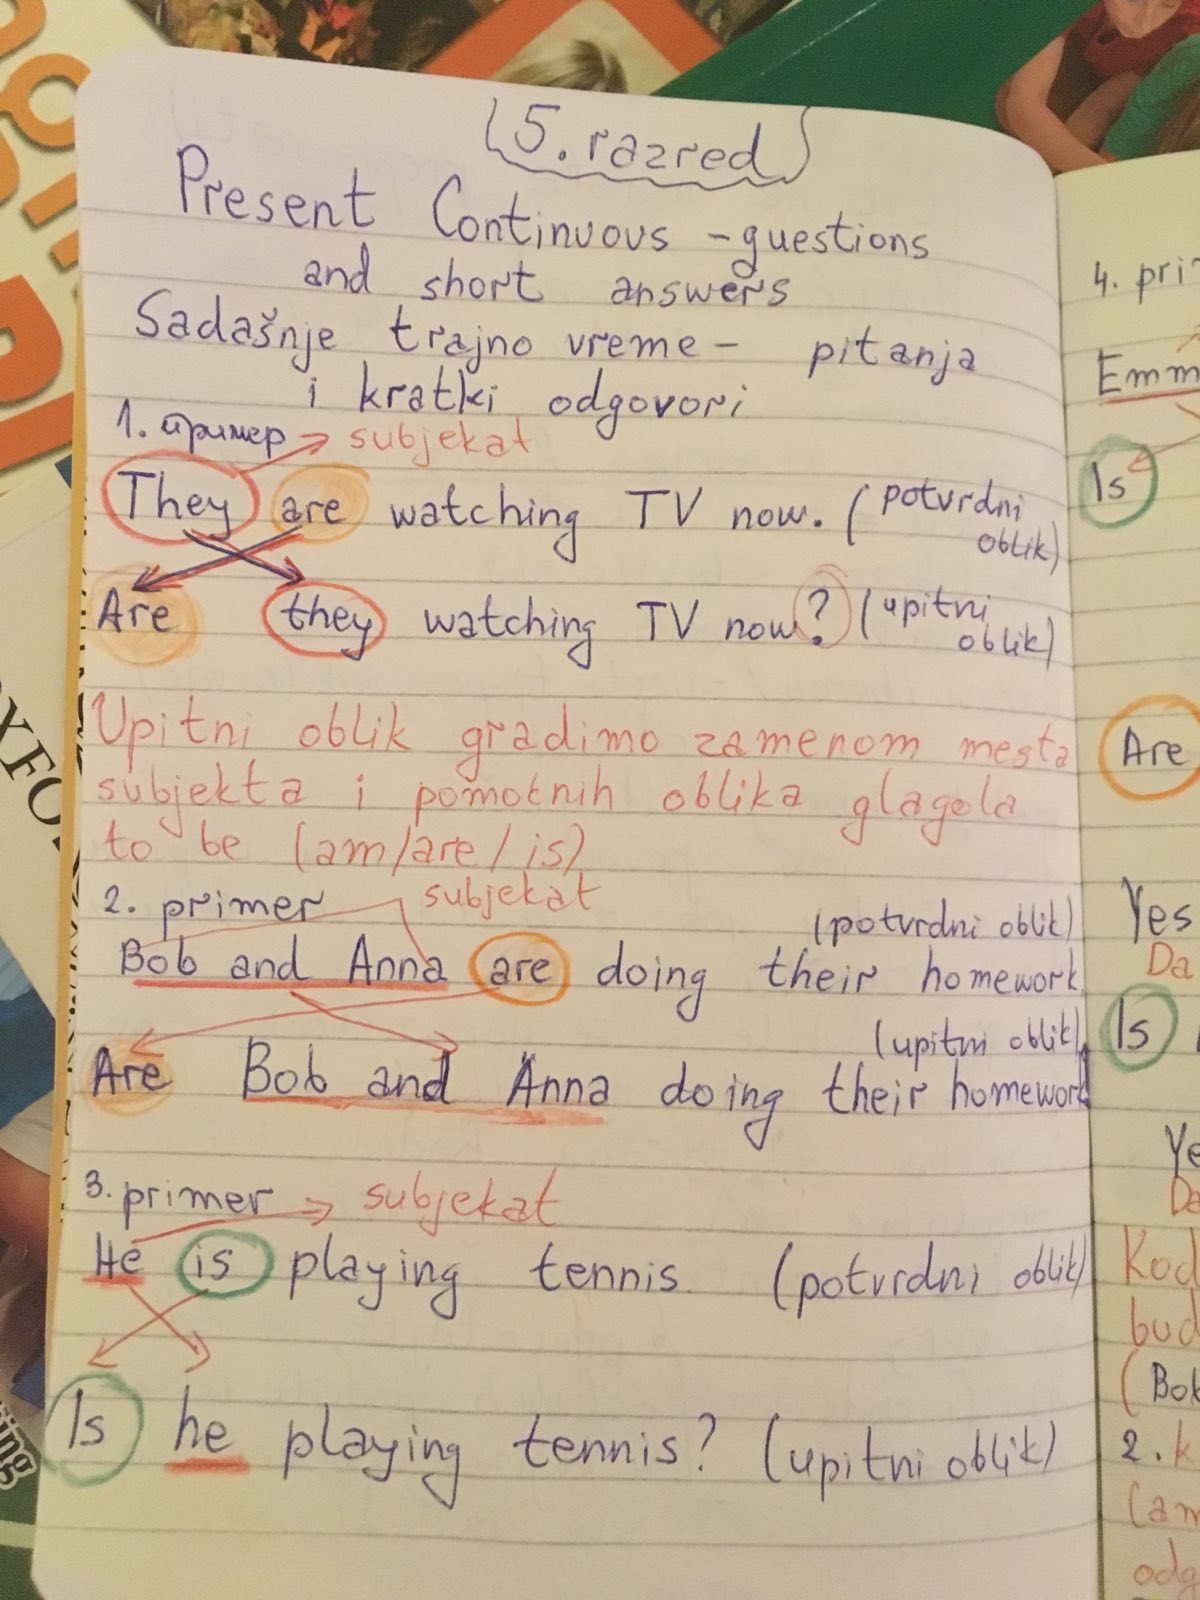 5. razred
Present Continuous - questions
and short answers
Sadašnje trajno vreme - pitanja
i kratki odgovori
1. пример → subjekat
They are watching TV now. (potvrdni
oblik)
Are they watching TV now? (upitni
oblik)
Upitni oblik gradimo zamenom mesta
subjekta i pomoćnih oblika glagola
to be (am/are/is)
2. primer subjekat
(potvrdni oblik)
Bob and Anna are doing their homework.
(upitni oblik)
Are Bob and Anna doing their homework?
3. primer → subjekat
He is playing tennis. (potvrdni oblik)
Is he playing tennis? (upitni oblik)
4. pri
Emm
Is
Are
Yes
Da
Is
Ye
Da
Kod
bud
(Bob
2. k
(am
odg
OXFO